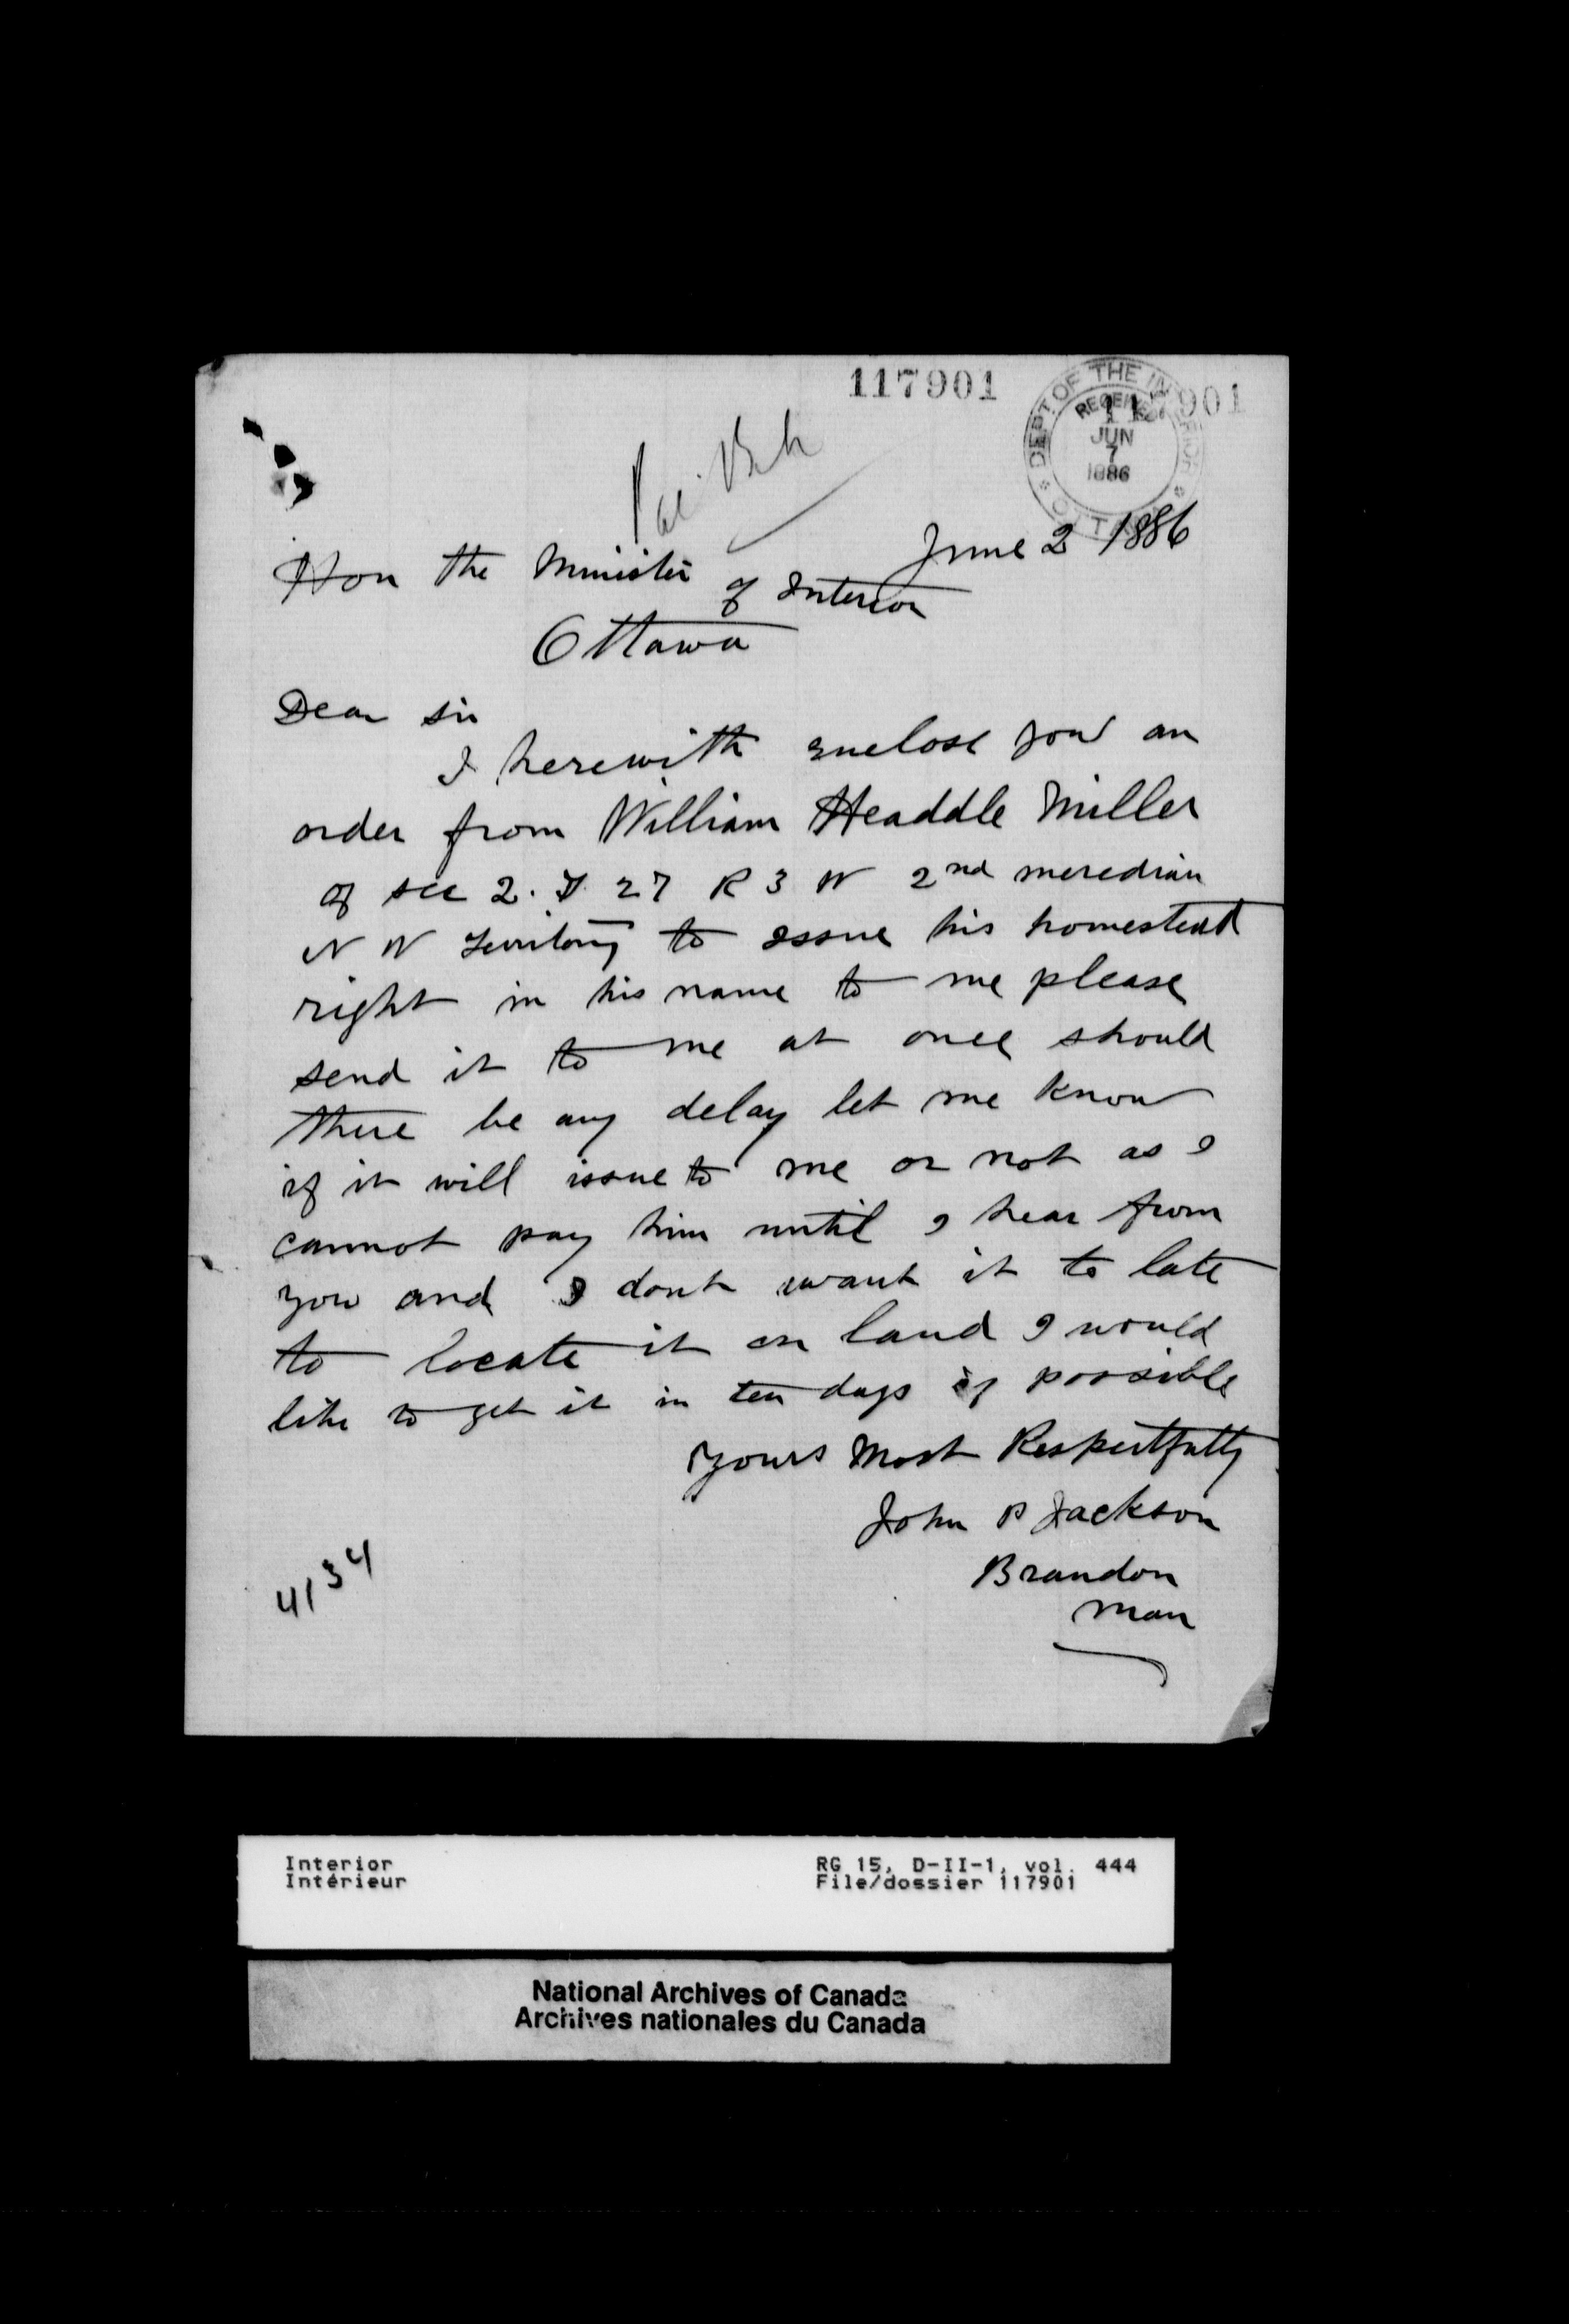 117901
DEPT. OF THE INTERIOR
RECEIVED
117901
JUN
7
1886
OTTAWA
June 2 1886
Hon the Minister
of Interior
Ottawa
Dear Sir
I herewith enclose you an
order from William Headdle Miller
of sec 2. T 27 R 3 W 2nd meredian
N W Territory to issue his homestead
right in his name to me please
send it to me at once should
there be any delay let me know
if it will issue to me or not as I
cannot pay him until I hear from
you and I dont want it to late
to locate it on land I would
like to get it in ten days if possible
Yours Most Respectfully
John P Jackson
Brandon
Man
4134
Interior
Intérieur
RG 15, D-II-1, vol. 444
File/dossier 117901
National Archives of Canada
Archives nationales du Canada